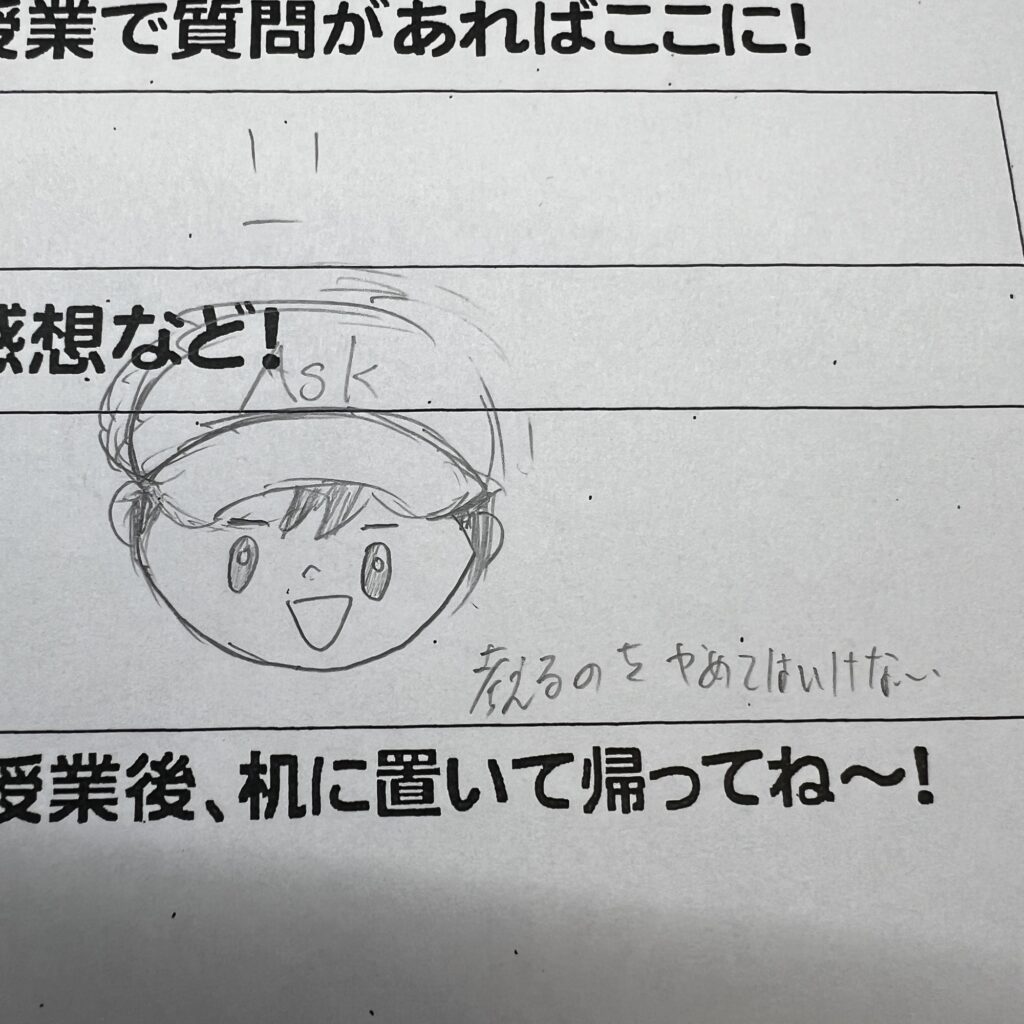 授業で質問があればここに!
感想など!
Ask
考えるのをやめてはいけない
授業後、机に置いて帰ってね〜!